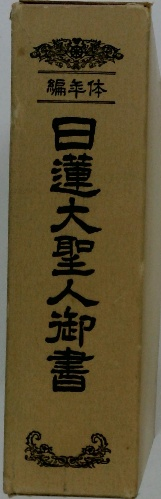 編年体
日蓮大聖人御書